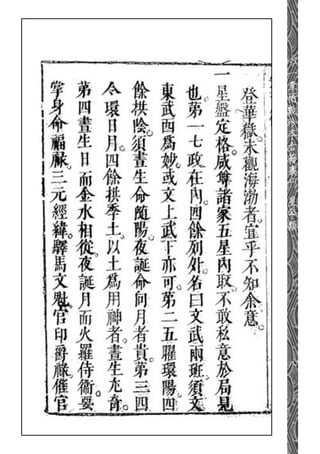 登華嶽未觀海渤者宜乎不知余意
一星盤定格咸尊諸家五星內取不敢私意於局見
也第一七政在內四餘列外名曰文武兩班須文
東武西爲妙或文上武下亦可第二五曜環陽四
餘拱陰須晝生命隨陽夜誕命向月者貴第三四
令環日月四餘拱季土以土爲用神者晝生尤奇
第四晝生日而金水相從夜誕月而火羅侍衞要
掌身命福祿三元經緯驛馬文魁官印爵祿催官